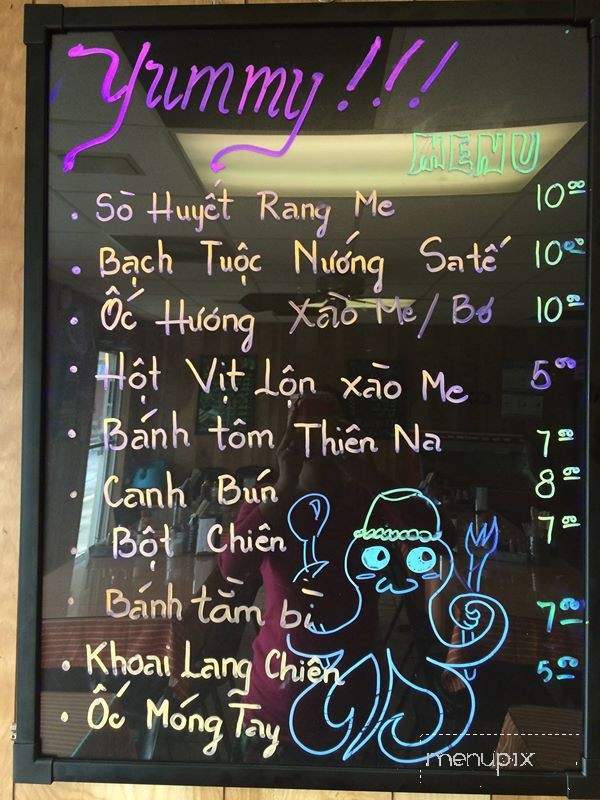 Yummy!!!
MENU
• Sò Huyết Rang Me 10.00
• Bạch Tuộc Nướng Satế 10.00
• Ốc Hương Xào Me / Bơ 10.00
• Hột Vịt Lộn xào Me 5.00
• Bánh tôm Thiên Na 7.00
• Canh Bún 8.00
• Bột Chiên 7.00
• Bánh tằm bì 7.00
• Khoai Lang Chiên 5.00
• Ốc Móng Tay
menupix